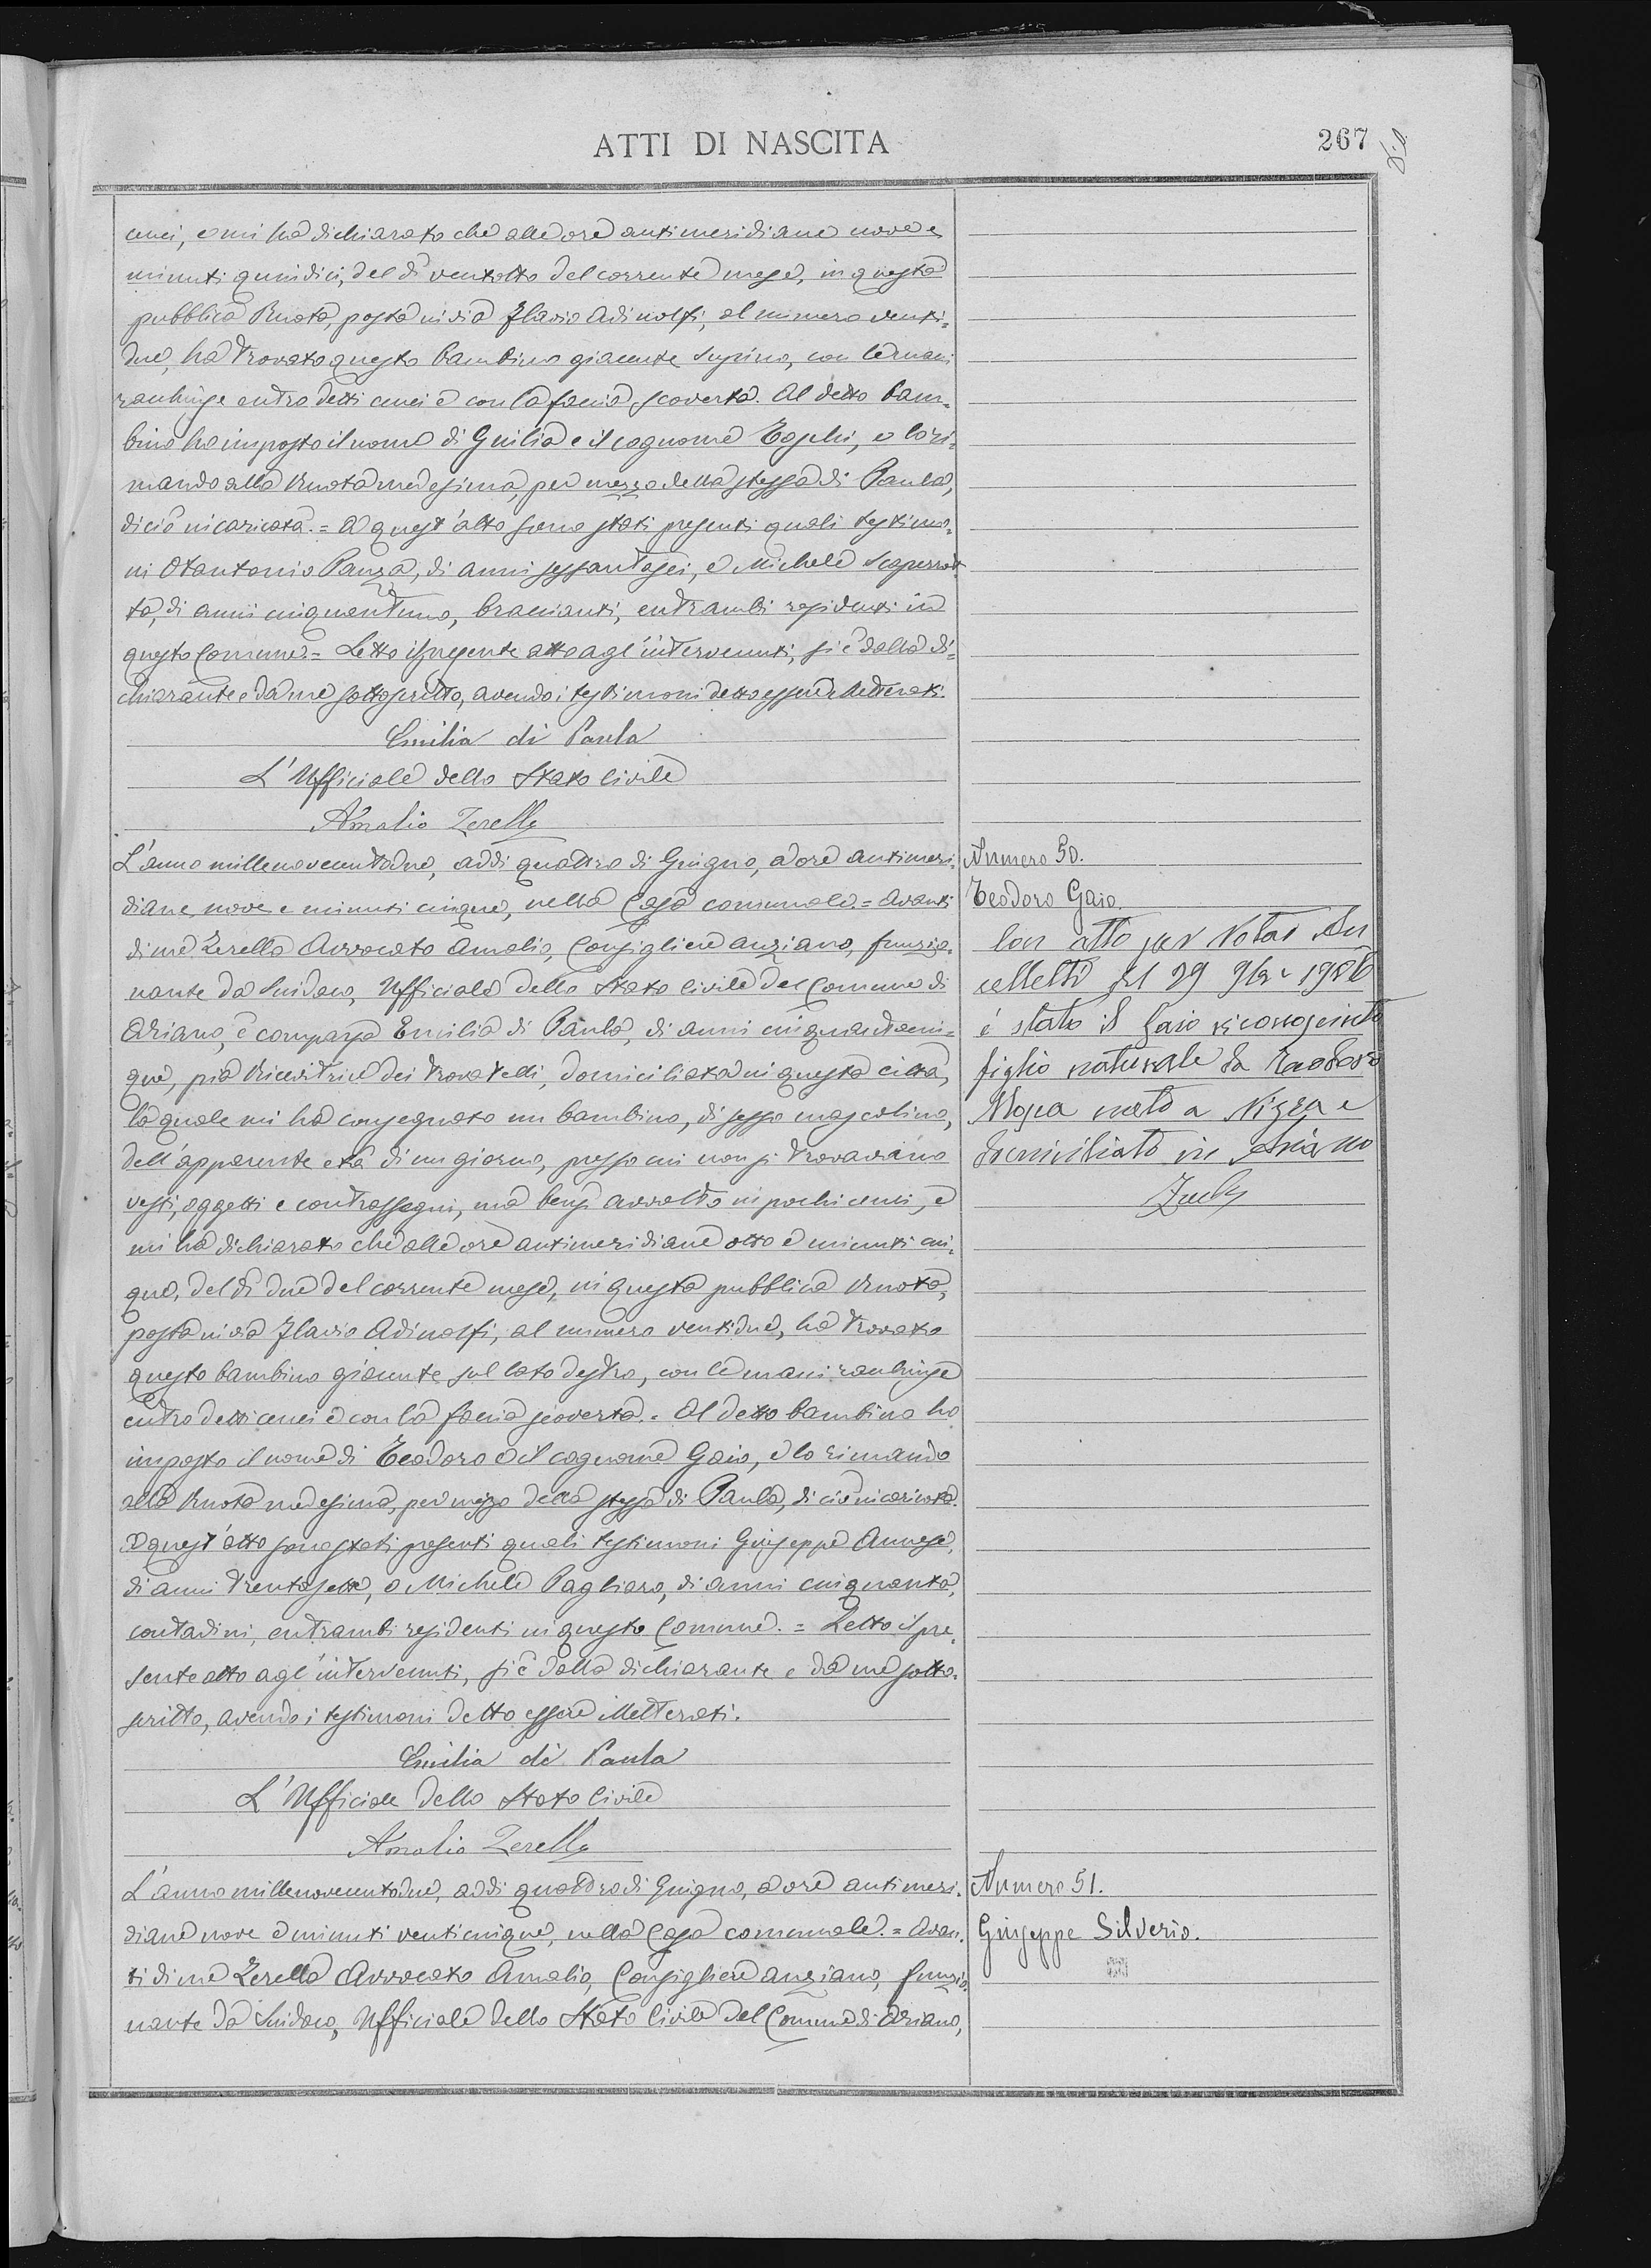 ATTI DI NASCITA
267
cenci, e mi ha dichiarato che alle ore antimeridiane nove e
minuti quindici, del dì ventotto del corrente mese, in questa
pubblica Ruota, posta in via Flavio Adinolfi, al numero venti=
due, ha trovato questo bambino giacente supino, con le mani
racchiuse entro detti cenci e con la faccia scoverta. Al detto bam=
bino ho imposto il nome di Giulia e il cognome Toschi, e lo ri=
mando alla Ruota medesima, per mezzo della stessa di Paula,
di ciò incaricata. = A quest'atto sono stati presenti quali testimo=
ni Otantonio Panza, di anni sessantasei, e Michele Scaperrot=
ta, di anni cinquantuno, braccianti, entrambi residenti in
questo Comune. = Letto il presente atto agl'intervenuti, si è dalla di=
chiarante e da me sottoscritto, avendo i testimoni detto essere illetterati.
Emilia di Paula
L'Ufficiale dello Stato Civile
Amalio Zerella
L'anno millenovecentodue, addì quattro di Giugno, a ore antimeri=
diane nove e minuti cinque, nella Casa comunale. = Avanti
di me Zerella Avvocato Amalio, Consigliere anziano, funzio=
nante da Sindaco, Ufficiale dello Stato Civile del Comune di
Ariano, è comparsa Emilia di Paula, di anni cinquantacin=
que, pia Ricevitrice dei trovatelli, domiciliata in questa città,
la quale mi ha consegnato un bambino, di sesso mascolino,
dell'apparente età di un giorno, presso cui non si trovavano
vesti, oggetti e contrassegni, ma bensì avvolto in pochi cenci, e
mi ha dichiarato che alle ore antimeridiane otto e minuti cin=
que, del dì due del corrente mese, in questa pubblica Ruota,
posta in via Flavio Adinolfi, al numero ventidue, ha trovato
questo bambino giacente sul lato destro, con le mani racchiuse
entro detti cenci e con la faccia scoverta. = Al detto bambino ho
imposto il nome di Teodoro e il cognome Gaio, e lo rimando
alla Ruota medesima, per mezzo della stessa di Paula, di ciò incaricata.
A quest'atto sono stati presenti quali testimoni Giuseppe Annese,
di anni trentasette, e Michele Pagliaro, di anni cinquanta,
contadini, entrambi residenti in questo Comune. = Letto il pre=
sente atto agl'intervenuti, si è dalla dichiarante e da me sotto=
scritto, avendo i testimoni detto essere illetterati.
Emilia di Paula
L'Ufficiale dello Stato Civile
Amalio Zerella
L'anno millenovecentodue, addì quattro di Giugno, a ore antimeri=
diane nove e minuti venticinque, nella Casa comunale. = Avan=
ti di me Zerella Avvocato Amalio, Consigliere anziano, funzio=
nante da Sindaco, Ufficiale dello Stato Civile del Comune di Ariano,
Numero 50.
Teodoro Gaio.
Con atto per Notar
del 29 9bre
è stato il Gaio riconosciuto
figlio naturale da Teodoro
nato a Nizza e
domiciliato in Ariano
Numero 51.
Giuseppe Silverio.